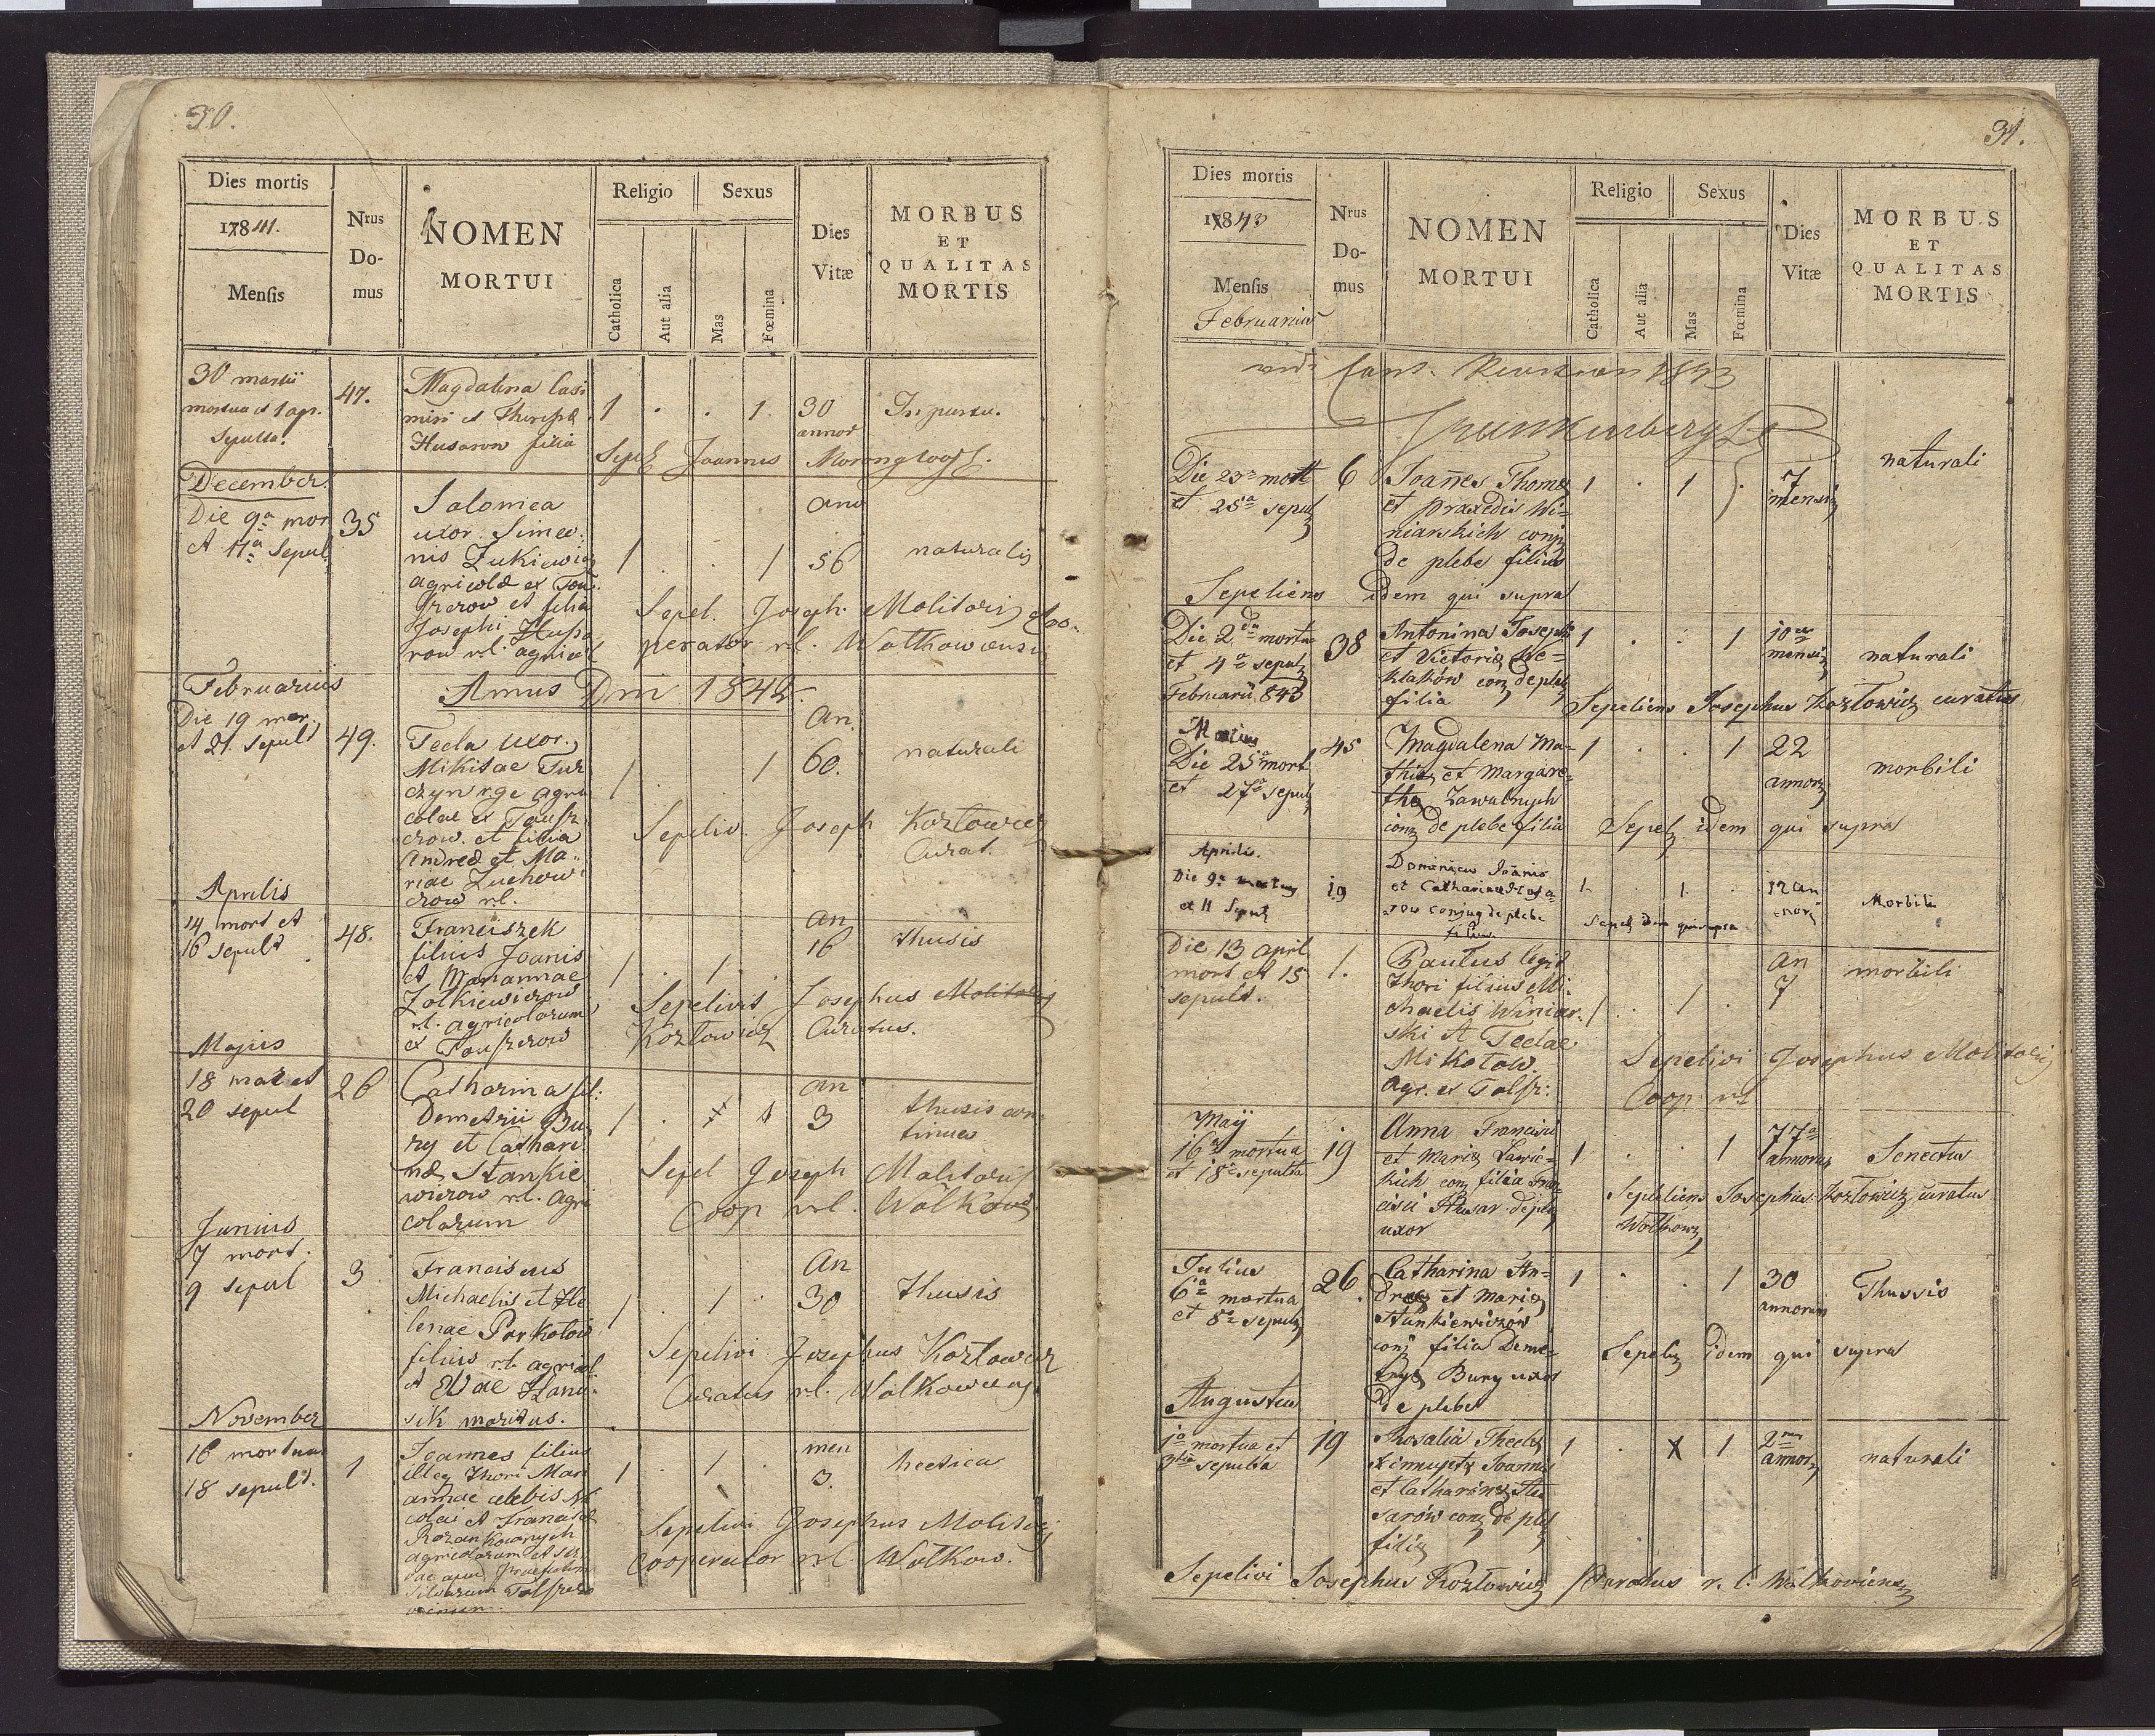 30.
Dies mortis
17841.
Mensis
Nrus
Do-
mus
NOMEN
MORTUI
Religio
Sexus
Catholica
Aut alia
Mas
Fœmina
Dies
Vitæ
MORBUS
ET
QUALITAS
MORTIS
30 martii
mortua et 1 apr.
Sepulta.
47.
Magdalena Casi
miri et Theresæ
Husarow filia
1 . . 1.
30
annor
In partu.
Joannes
December.
Die 9a mor
et 11a Sepul.
35
Salomea
uxor Simeo-
nis Zukiewicz
agricolæ ex
et filia
Josephi
row rl. agricol
1 . . 1
ano
56
naturalis
Sepel. Joseph. Molitoris Coo-
perator rl. Wolkowiensis
Februarius
Annus Dni 1842.
Die 19 mor.
et 21. sepult
49.
Tecla uxor
Mikitae Tur
czyn rge agri
colae ex
crow. et filia
Andreæ et Ma-
riae
crow rl.
1 . . 1
An.
60.
naturali
Sepeliv. Joseph Kozlowicz
Curat.
Aprilis
14 mort et
16 sepult
48.
Franciszek
filius Joanis
et Mariannae
Zolkiewiczow
rl. agricolarum
ex
1 . 1 .
an
16
thusis
Sepelivit Josephus Molitoris
Kozlowicz Curatus.
Majus
18 mor et
20 sepul
26
Catharina fil:
Demetrii Bu
ry et Cathari
næ Stankie
wiczow rl. Agri
colarum
1 . 1 1
an
3
thusis con
tinua
Sepel Joseph Molitoris
Coop rl. Wolkow
Junius
7 mort.
9 sepul
3
Franciscus
Michaelis et He
lenae Parkolow
filius rl. agricol.
et Evae
sik maritus.
1 . 1 .
An
30
thusis
Sepelivi Josephus Kozlowicz
Curatus rl. Wolkowiens
November
16 mortuus
18 sepult.
1
Joannes filius
illeg thori Mari
annae celebis Ni
colai et Francisc
agricolarum et
1 . 1 .
men
3.
hectica
Sepelivi Josephus Molitoris
Cooperator rl. Wolkow.
31.
Dies mortis
17843
Mensis
Februarius
Nrus
Do-
mus
NOMEN
MORTUI
Religio
Sexus
Catholica
Aut alia
Mas
Fœmina
Dies
Vitæ
MORBUS
ET
QUALITAS
MORTIS
1843
Die 23a mort
et 25a sepul
6
Joannes Thomæ
et Praxedis Wi-
niarskich conj
de plebe filius
1 . 1 .
7
mensiu
naturali
Sepeliens idem qui supra
Die 2da mortua
et 4a sepul
Februarii 843
38
Antonina Josephi
et Victoriæ We-
klakow conj de pleb
filia
1 . . 1
10m
mensiu
naturali
Sepeliens Josephus Kozlowicz curatus
Martius
Die 25a mort
et 27a sepul
45
Magdalena Ma-
thiæ et Margare-
thæ Zawalnych
conj de plebe filia
1 . . 1
22
annor
morbili
Sepel idem qui supra
Aprilis.
Die 9a mortuus
et 11 Sepul
19
Dominicus Joanis
et Catharinæ Husa-
row conjug de plebe
filius
1. . 1. .
12 an
norum
Morbili
Sepel idem qui supra
Die 13 april
mort et 15
sepult.
1.
Paulus legit
thori filius Mi-
chaelis Winiar-
ski et Teclae
Mikolow.
agr. ex
1 . 1 .
an
7
morbili
Sepelivi Josephus Molitoris
Coop rl
Maij
16a mortua
et 18a sepulta
19
Anna Francisci
et Mariæ
kich conj filia Fran-
cisci Husar de pleb
uxor
1 . . 1
77a
annorum
Senectus
Sepeliens Josephus Kozlowicz curatus
Wolkow
Julius
6a mortua
et 8a sepul
26.
Catharina An-
dreæ et Mariæ
Stankiewiczów
conj filia Deme-
tryi Bury uxor
de plebe
1 . . 1
30
annorum
Thussis
Sepel idem qui supra
Augustus
1a mortua et
3tia sepulta
19
Rosalia Theclæ
Joannis
et Catharinæ Hu-
sarów conj de pleb
filia
1 . x 1
2um
annor
naturali
Sepelivi Josephus Kozlowicz Curatus r. l. Wolkoviensis